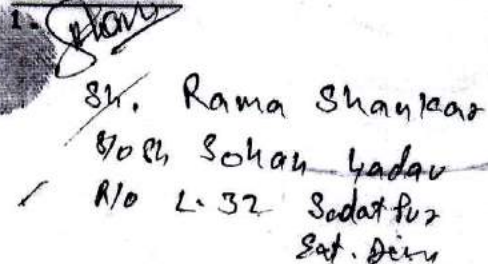 1.
Sh. Rama Shankar
S/o Sh Sohan Yadav
R/o L-32 Sadatpur
Ext. Delhi